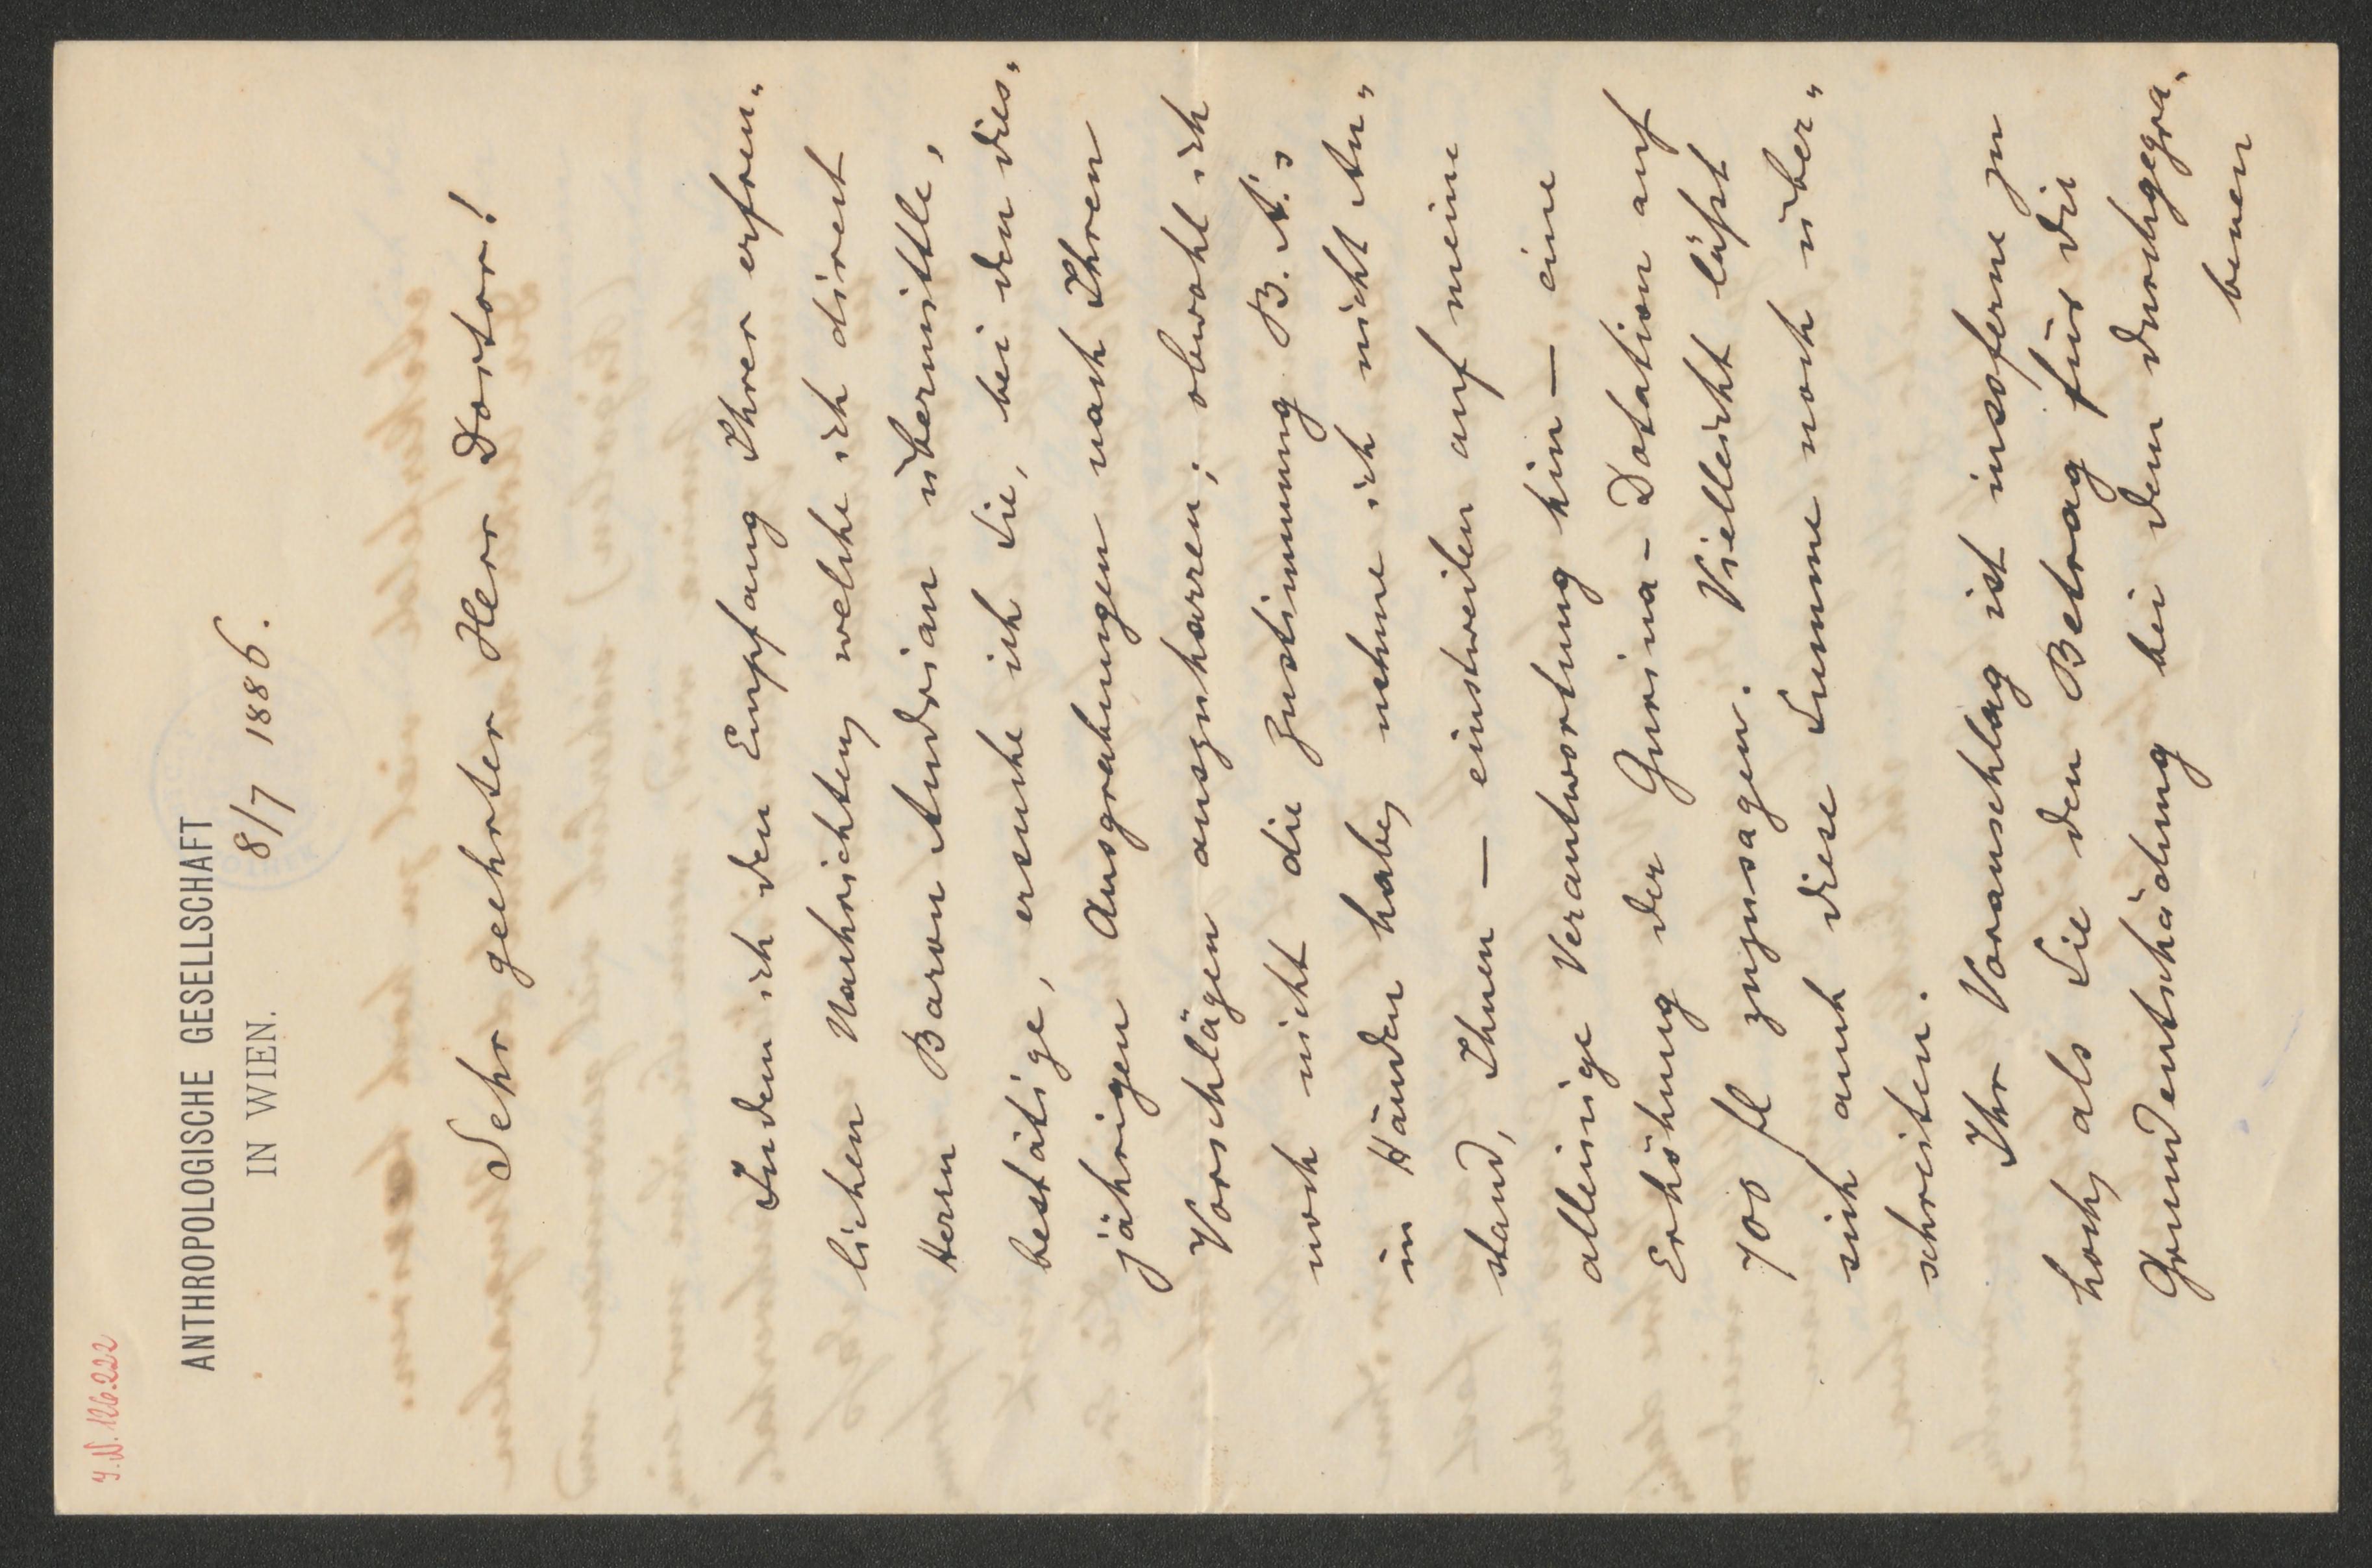 J.N. 126.222
ANTHROPOLOGISCHE GESELLSCHAFT
IN WIEN.
8/7 1886.
Sehr geehrter Herr Doctor!
Indem ich den Empfang Ihrer erfreu„
lichen Nachrichten, welche ich direct
Herrn Baron Andrian übermittle,
bestätige, ersuche ich Sie, bei den dies„
jährigen Ausgrabungen nach Ihren
Vorschlägen auszuharren; obwohl ich
noch nicht die Zustimmung B. A.'s
in Händen habe, nehme ich nicht An„
stand, Ihnen — einstweilen auf meine
alleinige Verantwortung hin — eine
Erhöhung der Gurina-Dotation auf
700 fl zuzusagen. Vielleicht läßt
sich auch diese Summe noch über„
schreiten.
Ihr Voranschlag ist insoferne zu
hoch, als Sie den Betrag für die
Grundentschädigung bei dem durchgegra„
benen